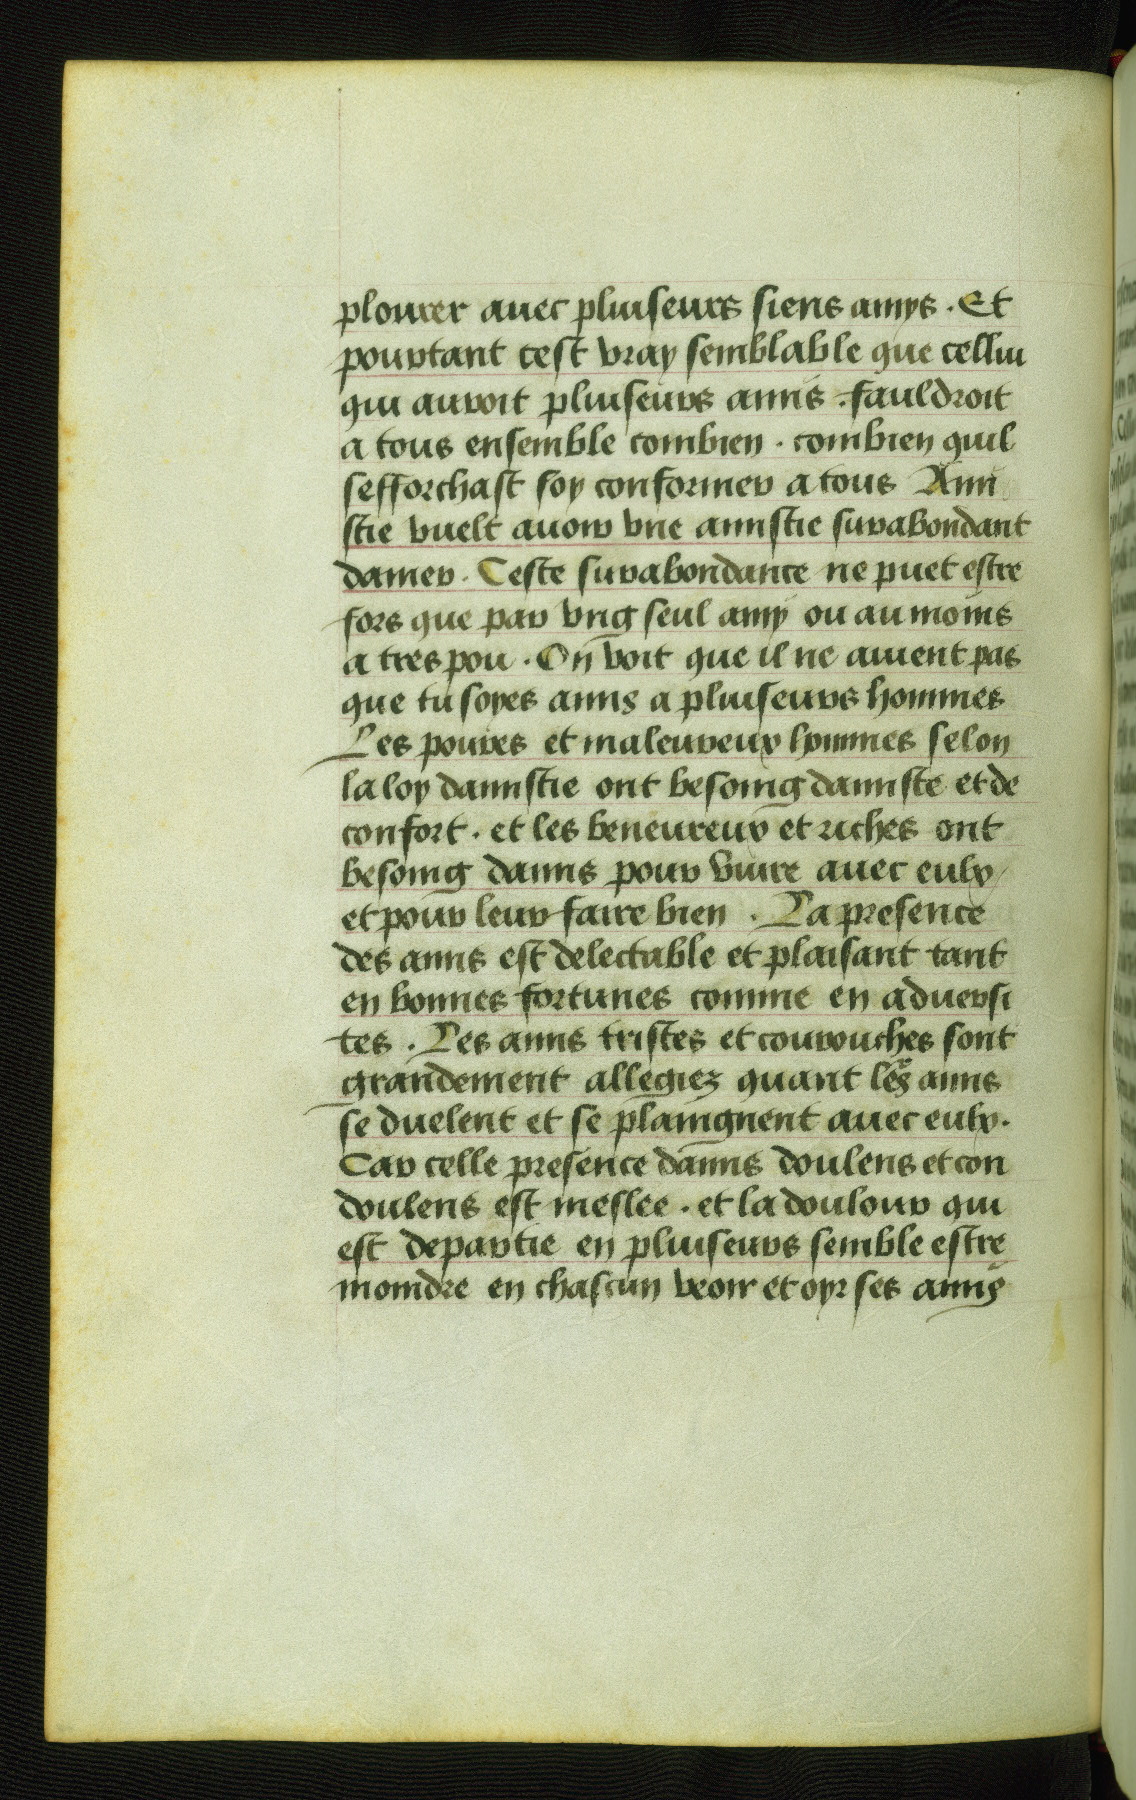 plourer auec pluiseurs siens amys . Et
pourtant cest vray semblable que cellui
qui auroit pluiseurs amis . fauldroit
a tous ensemble combien . combien quil
sefforchast soy conformer a tous Ami
stie vuelt auoir vne amistie surabondant
damer . Ceste surabondance ne puet estre
fors que par vng seul amy ou au moins
a tres pou . On voit que il ne auient pas
que tu soyes amis a pluiseurs hommes
Les poures et maleureux hommes selon
la loy damistie ont besoing damiste et de
confort . et les beneureux et riches ont
besoing damis pour viure auec eulx
et pour leur faire bien . La presence
des amis est delectable et plaisant tant
en bonnes fortunes comme en aduersi
tes . Les amis tristes et courouches sont
grandement allegiez quant les amis
se duelent et se plaingnent auec eulx .
Car celle presence damis doulens et con
doulens est meslee . et la doulour qui
est departie en pluiseurs semble estre
moindre en chascun veoir et oyr ses amis